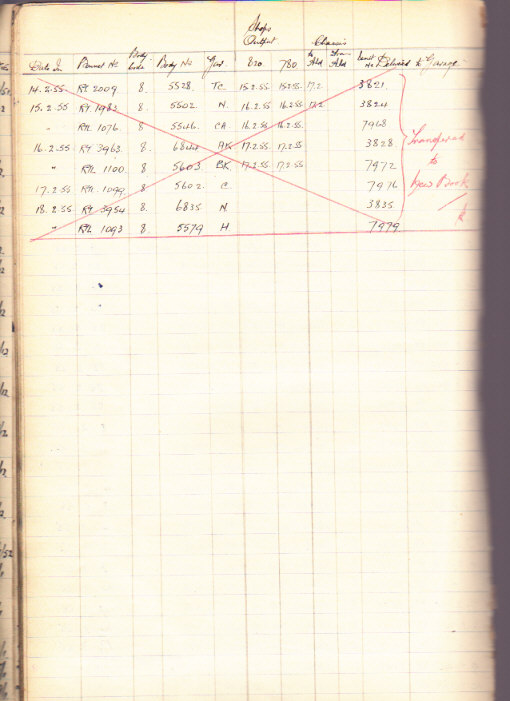 Shops
Output Chassis
Date In. Bonnet No Body Code Body No Gar. 820 780 to Ald from Ald Unit No Delivered to Garage
14.2.55 RT 2009 8. 5528. TC 15.2.55 15.2.55 17.2 3821.
15.2.55 RT 1983 8. 5502. N. 16.2.55 16.2.55 17.2 3824
" RTL 1076. 8 5546. CA 16.2.55 16.2.55. 7968
16.2.55 RT 3963. 8. 6844 AK 17.2.55 17.2.55 3828
" RTL 1100. 8 5603 BK 17.2.55 17.2.55 7972
17.2.55 RTL 1099. 8 5602. C 7976
18.2.55 RT 3954 8. 6835 N 3835
" RTL 1093 8 5579 H 7979
Transferred
to
New Book